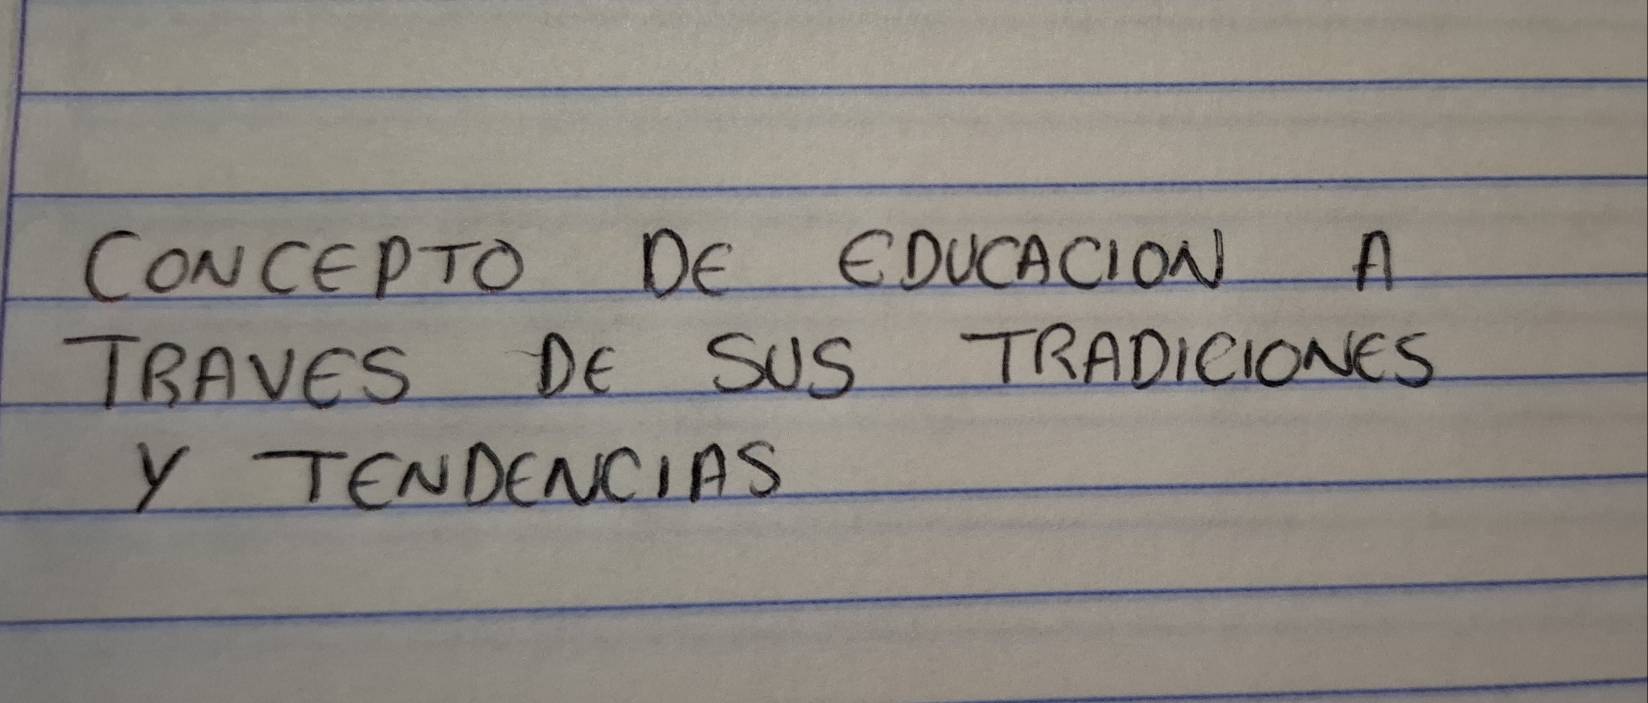 CONCEPTO DE EDUCACION A
TRAVES DE SUS TRADICIONES
Y TENDENCIAS